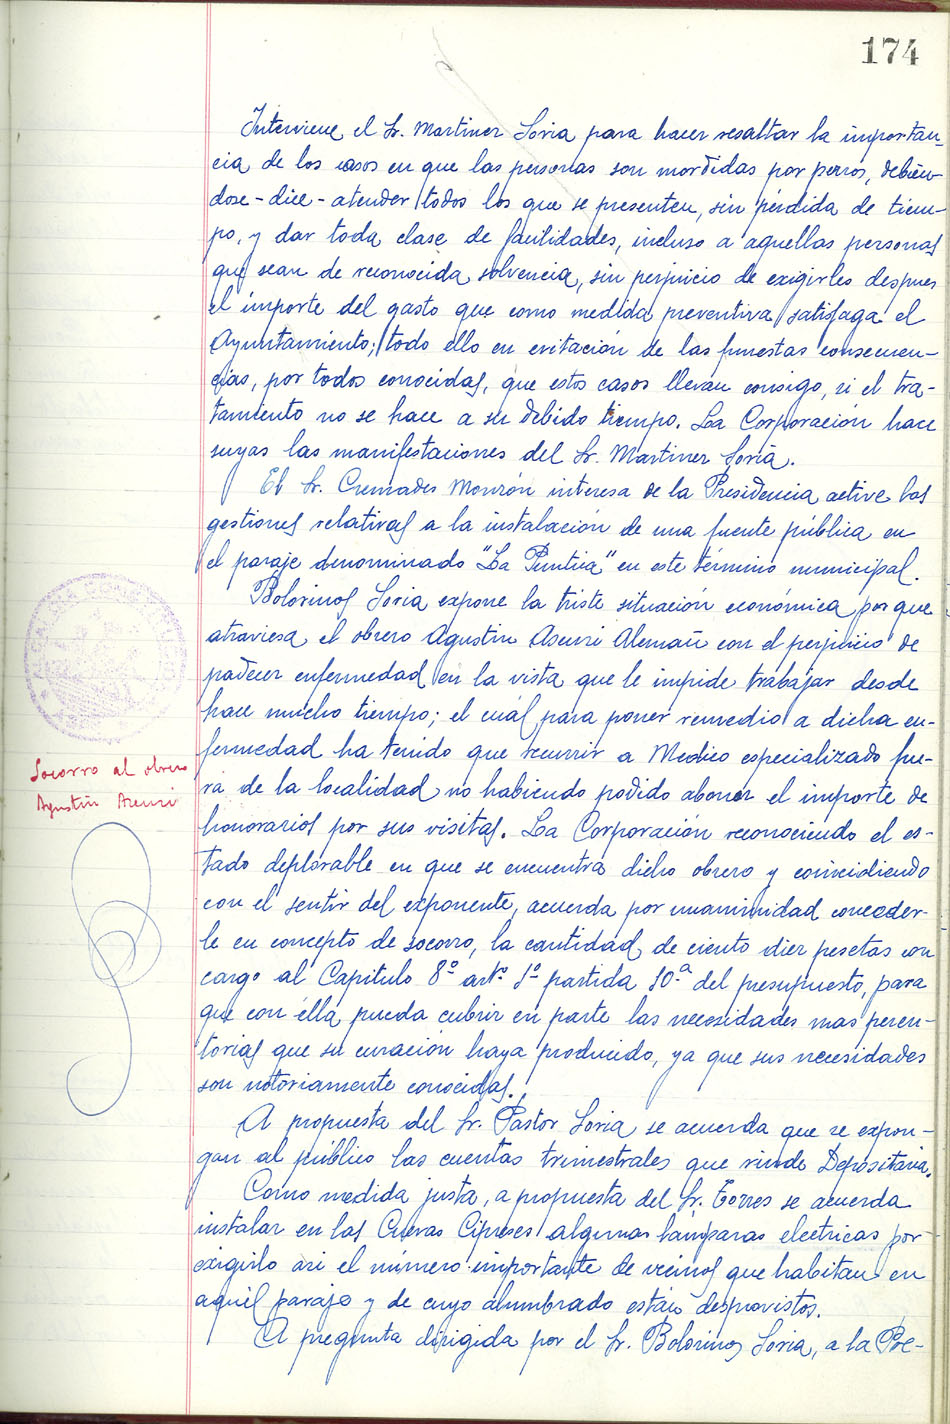 174
Interviene el Sr. Martinez Soria para hacer resaltar la importan-
cia de los casos en que las personas son mordidas por perros, debién-
dose - dice - atender todos los que se presenten, sin pérdida de tiem-
po, y dar toda clase de facilidades, incluso a aquellas personas
que sean de reconocida solvencia, sin perjuicio de exigirles despues
el importe del gasto que como medida preventiva satisfaga el
Ayuntamiento; todo ello en evitación de las funestas consecuen-
cias, por todos conocidas, que estos casos llevan consigo, si el tra-
tamiento no se hace a su debido tiempo. La Corporación hace
suyas las manifestaciones del Sr. Martinez Soria.
El Sr. Cremades Monzón interesa de la Presidencia active las
gestiones relativas a la instalación de una fuente pública en
el paraje denominado "La Puntica" en este término municipal.
Bolorinos Soria expone la triste situación económica por que
atraviesa el obrero Agustin Asensi Alemañ con el perjuicio de
padecer enfermedad en la vista que le impide trabajar desde
hace mucho tiempo; el cuál para poner remedio a dicha en-
fermedad ha tenido que recurrir a Medico especializado fue-
ra de la localidad no habiendo podido abonar el importe de
honorarios por sus visitas. La Corporación reconociendo el es-
tado deplorable en que se encuentra dicho obrero y coincidiendo
con el sentir del exponente, acuerda por unanimidad conceder-
le en concepto de socorro, la cantidad de ciento diez pesetas con
cargo al Capitulo 8º artº 1º partida 10ª del presupuesto, para
que con élla pueda cubrir en parte las necesidades mas peren-
torias que su curación haya producido, ya que sus necesidades
son notoriamente conocidas.
A propuesta del Sr. Pastor Soria se acuerda que se expon-
gan al público las cuentas trimestrales que rinde Depositaria.
Como medida justa, a propuesta del Sr. Torres se acuerda
instalar en las Cuevas Cipreses algunas lámparas electricas por
exigirlo asi el número importante de vecinos que habitan en
aquél paraje y de cuyo alumbrado están desprovistos.
A pregunta dirigida por el Sr. Bolorinos Soria, a la Pre-
Socorro al obrero
Agustin Asensi
ALCALDIA CONSTITUCIONAL